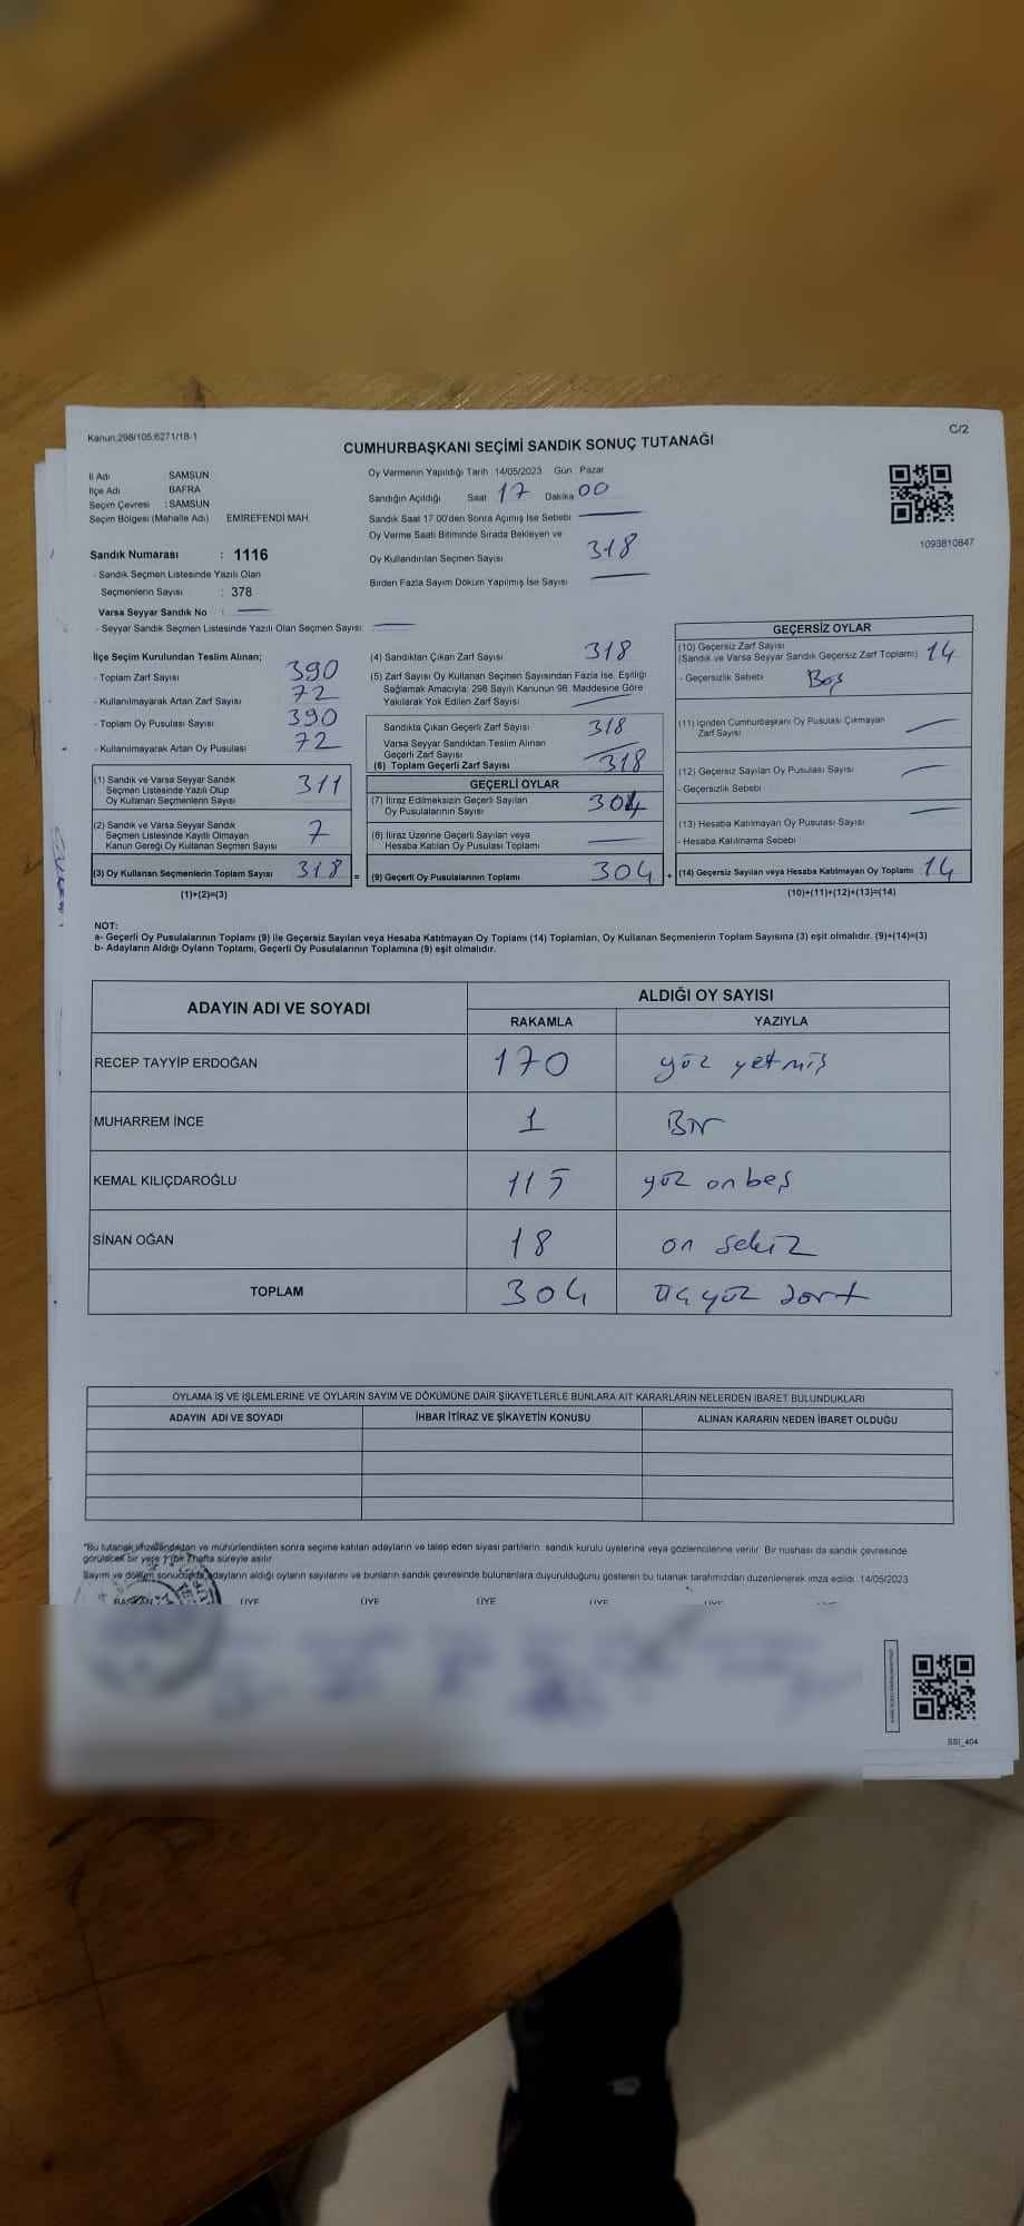 Kanun:298/105.6271/18-1
C/2
CUMHURBAŞKANI SEÇİMİ SANDIK SONUÇ TUTANAĞI
İl Adı SAMSUN
İlçe Adı BAFRA
Seçim Çevresi : SAMSUN
Seçim Bölgesi (Mahalle Adı) EMİREFENDİ MAH.
Sandık Numarası : 1116
- Sandık Seçmen Listesinde Yazılı Olan
Seçmenlerin Sayısı : 378
Varsa Seyyar Sandık No : —
- Seyyar Sandık Seçmen Listesinde Yazılı Olan Seçmen Sayısı: —
Oy Vermenin Yapıldığı Tarih 14/05/2023 Gün Pazar
Sandığın Açıldığı Saat 17 Dakika 00
Sandık Saat 17.00'den Sonra Açılmış İse Sebebi —
Oy Verme Saati Bitiminde Sırada Bekleyen ve
Oy Kullandırılan Seçmen Sayısı 318
Birden Fazla Sayım Döküm Yapılmış İse Sayısı —
1093810847
İlçe Seçim Kurulundan Teslim Alınan;
- Toplam Zarf Sayısı 390
- Kullanılmayarak Artan Zarf Sayısı 72
- Toplam Oy Pusulası Sayısı 390
- Kullanılmayarak Artan Oy Pusulası 72
(1) Sandık ve Varsa Seyyar Sandık
Seçmen Listesinde Yazılı Olup
Oy Kullanan Seçmenlerin Sayısı 311
(2) Sandık ve Varsa Seyyar Sandık
Seçmen Listesinde Kayıtlı Olmayan
Kanun Gereği Oy Kullanan Seçmen Sayısı 7
(3) Oy Kullanan Seçmenlerin Toplam Sayısı 318 =
(1)+(2)=(3)
(4) Sandıktan Çıkan Zarf Sayısı 318
(5) Zarf Sayısı Oy Kullanan Seçmen Sayısından Fazla İse, Eşitliği
Sağlamak Amacıyla; 298 Sayılı Kanunun 98. Maddesine Göre
Yakılarak Yok Edilen Zarf Sayısı —
Sandıkta Çıkan Geçerli Zarf Sayısı 318
Varsa Seyyar Sandıktan Teslim Alınan
Geçerli Zarf Sayısı —
(6) Toplam Geçerli Zarf Sayısı 318
GEÇERLİ OYLAR
(7) İtiraz Edilmeksizin Geçerli Sayılan
Oy Pusulalarının Sayısı 304
(8) İtiraz Üzerine Geçerli Sayılan veya
Hesaba Katılan Oy Pusulası Toplamı —
(9) Geçerli Oy Pusulalarının Toplamı 304 +
GEÇERSİZ OYLAR
(10) Geçersiz Zarf Sayısı
(Sandık ve Varsa Seyyar Sandık Geçersiz Zarf Toplamı) 14
- Geçersizlik Sebebi Boş
(11) İçinden Cumhurbaşkanı Oy Pusulası Çıkmayan
Zarf Sayısı —
(12) Geçersiz Sayılan Oy Pusulası Sayısı —
- Geçersizlik Sebebi
(13) Hesaba Katılmayan Oy Pusulası Sayısı —
- Hesaba Katılmama Sebebi
(14) Geçersiz Sayılan veya Hesaba Katılmayan Oy Toplamı 14
(10)+(11)+(12)+(13)=(14)
NOT:
a- Geçerli Oy Pusulalarının Toplamı (9) ile Geçersiz Sayılan veya Hesaba Katılmayan Oy Toplamı (14) Toplamları, Oy Kullanan Seçmenlerin Toplam Sayısına (3) eşit olmalıdır. (9)+(14)=(3)
b- Adayların Aldığı Oyların Toplamı, Geçerli Oy Pusulalarının Toplamına (9) eşit olmalıdır.
ADAYIN ADI VE SOYADI ALDIĞI OY SAYISI
RAKAMLA YAZIYLA
RECEP TAYYİP ERDOĞAN 170 yüz yetmiş
MUHARREM İNCE 1 Bir
KEMAL KILIÇDAROĞLU 115 yüz onbeş
SİNAN OĞAN 18 on sekiz
TOPLAM 304 üç yüz dört
OYLAMA İŞ VE İŞLEMLERİNE VE OYLARIN SAYIM VE DÖKÜMÜNE DAİR ŞİKAYETLERLE BUNLARA AİT KARARLARIN NELERDEN İBARET BULUNDUKLARI
ADAYIN ADI VE SOYADI İHBAR İTİRAZ VE ŞİKAYETİN KONUSU ALINAN KARARIN NEDEN İBARET OLDUĞU
*Bu tutanak imzalandıktan ve mühürlendikten sonra seçime katılan adayların ve talep eden siyasi partilerin, sandık kurulu üyelerine veya gözlemcilerine verilir. Bir nüshası da sandık çevresinde
görülecek bir yere 1 (bir) hafta süreyle asılır.
Sayım ve döküm sonucunda adayların aldığı oyların sayılarını ve bunların sandık çevresinde bulunanlara duyurulduğunu gösteren bu tutanak tarafımızdan düzenlenerek imza edildi. 14/05/2023
BAŞKAN ÜYE ÜYE ÜYE ÜYE ÜYE
SSI_404